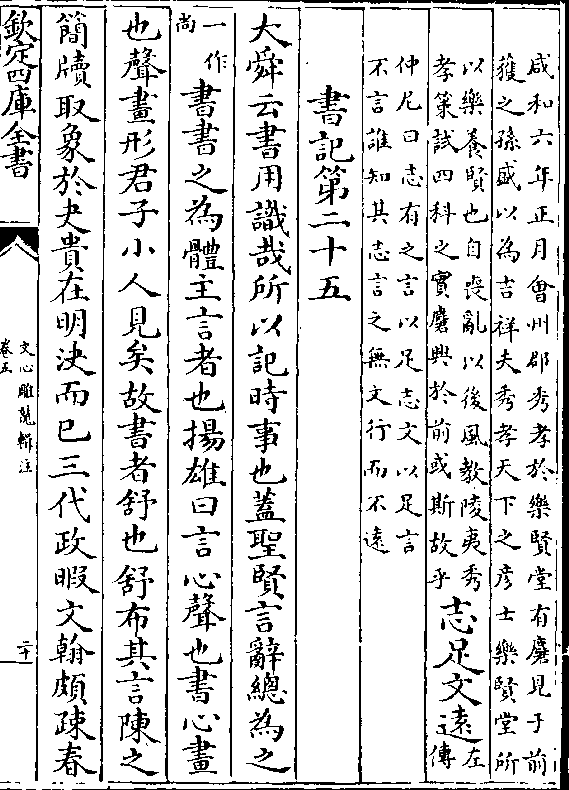 咸和六年正月會州郡秀孝於樂賢堂有麏見于前
獲之孫盛以為吉祥夫秀孝天下之彦士樂賢堂所
以樂養賢也自喪亂以後風教陵夷秀
孝策試四科之實麏興於前或斯故乎
志足文遠
左
傳
仲尼曰志有之言以足志文以足言
不言誰知其志言之無文行而不遠
書記第二十五
大舜云書用識哉所以記時事也蓋聖賢言辭總為之
一作
尚
書書之為體主言者也揚雄曰言心聲也書心畫
也聲畫形君子小人見矣故書者舒也舒布其言陳之
簡牘取象於夬貴在明決而已三代政暇文翰頗疎春
欽定四庫全書
文心雕龍輯注
卷五
二十